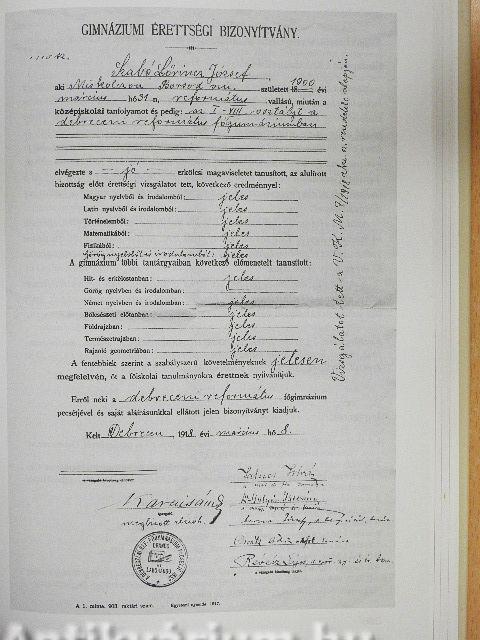 GIMNÁZIUMI ÉRETTSÉGI BIZONYÍTVÁNY.
Szabó Lőrincz József
aki Miskolczon Borsod vm. született 1900 évi
március hó 31 n, református vallású, miután a
középiskolai tanfolyamot és pedig: az I-VIII. osztályt a
debreceni református főgimnáziumban
elvégezte s jó erkölcsi magaviseletet tanusított, az alulírott
bizottság előtt érettségi vizsgálatot tett, következő eredménnyel:
Magyar nyelvből és irodalomból: jeles
Latin nyelvből és irodalomból: jeles
Történelemből: jeles
Matematikából: jeles
Fizikából: jeles
Görög nyelvből és irodalomból: jeles
A gimnázium többi tantárgyaiban következő előmenetelt tanusított:
Hit- és erkölcstanban: jeles
Görög nyelvben és irodalomban:
Német nyelvben és irodalomban: jeles
Bölcsészeti előtanban: jeles
Földrajzban: jeles
Természetrajzban: jeles
Rajzoló geometriában: jeles
A fentebbiek szerint a szabályszerű követelményeknek jelesen
megfelelvén, őt a főiskolai tanulmányokra érettnek nyilvánítjuk.
Erről neki a debreceni református főgimnázium
pecsétjével és saját aláírásunkkal ellátott jelen bizonyítványt kiadjuk.
Kelt Debrecen, 1918 évi március hó 8.
Vizsgálatot tett a V. K. M. rendelete alapján.
Karai Sándor
igazgató
A 1. minta. 903. raktári szám. Egyetemi nyomda 1917.
Antikvárium.hu